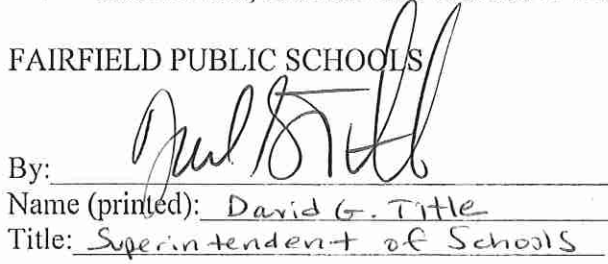 FAIRFIELD PUBLIC SCHOOLS
By:
Name (printed): David G. Title
Title: Superintendent of Schools